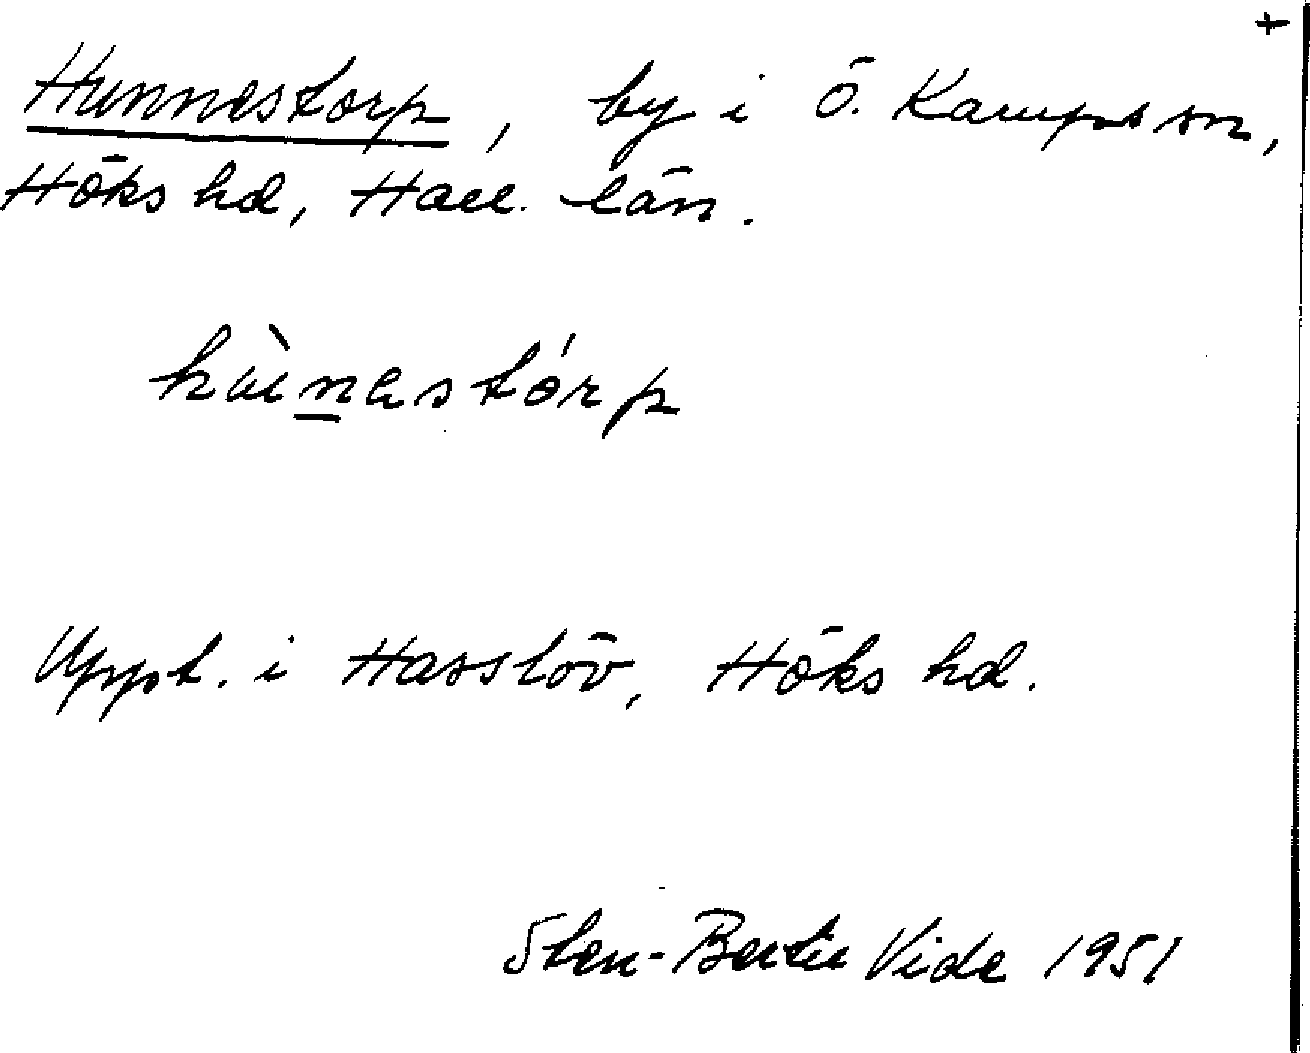 +
Hunnestorp, by i Ö. Karups sn,
Höks hd, Hall. län.
Uppt. i Hasslöv, Höks hd.
Sten-Bertil Vide 1951